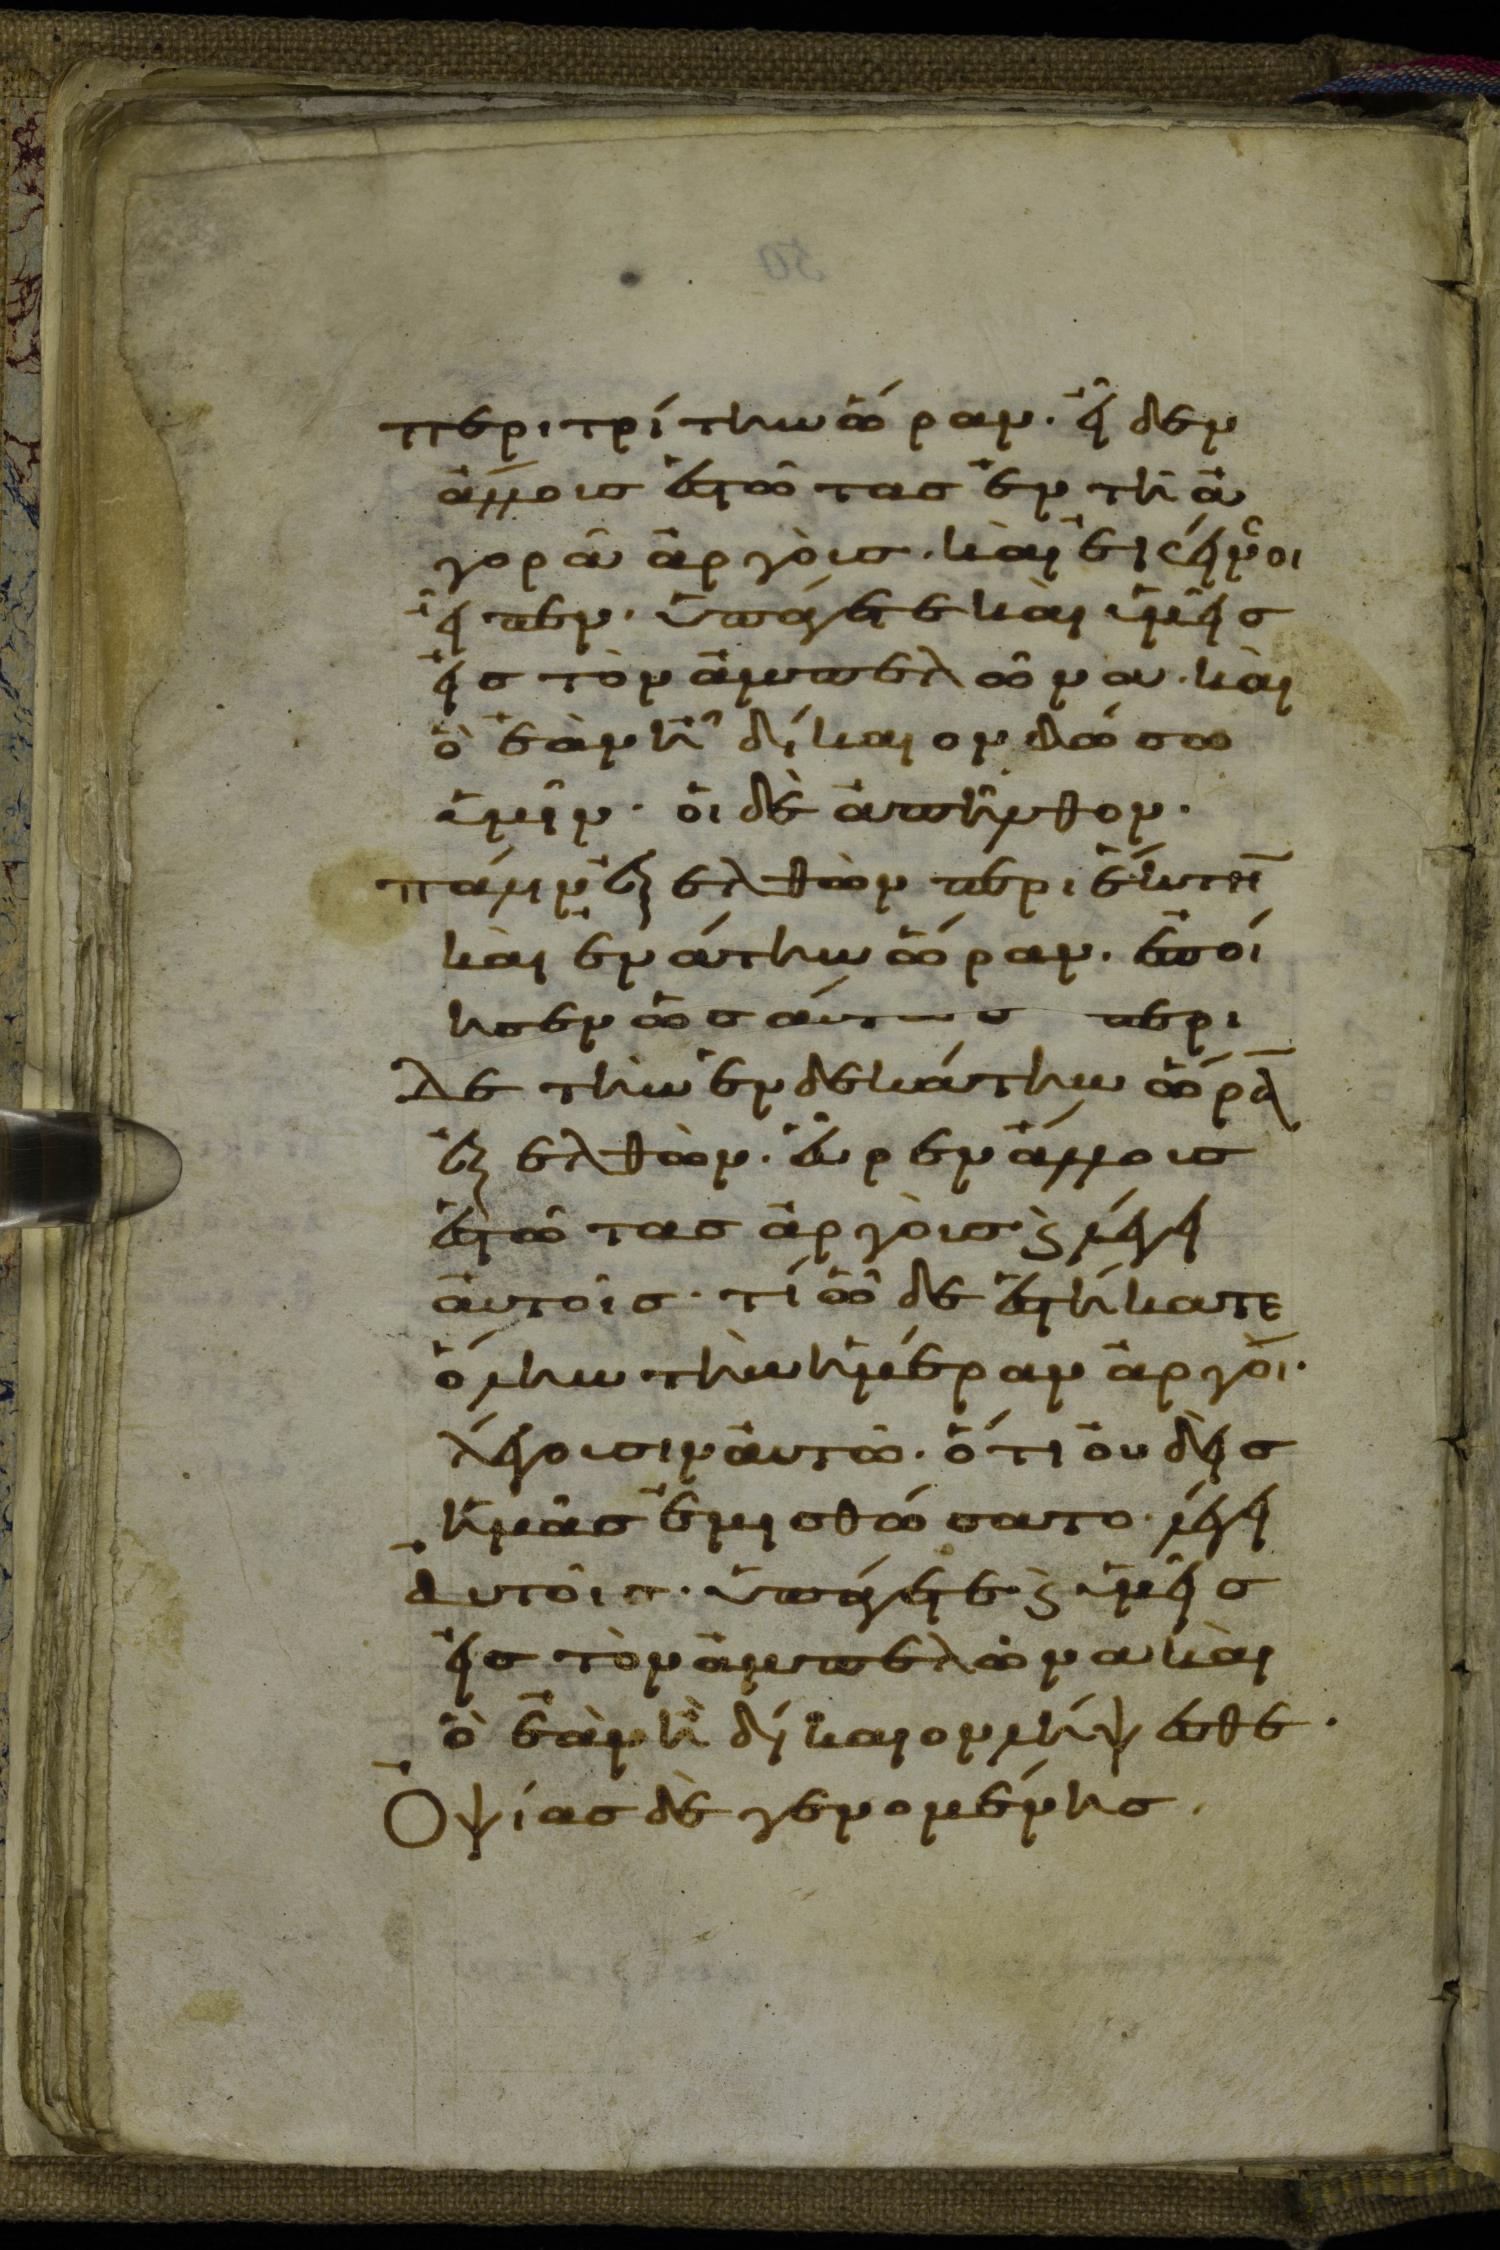 περι τρίτην ὥραν. εἶδεν
ἄλλους ἑστῶτας ἐν τῆ ἀ
γορᾶ ἀργούς. καὶ ἐκείνοις
εἶπεν. ὑπάγετε καὶ ὑμεῖς
εἰς τὸν ἀμπελῶνα. καὶ
ὃ ἐὰν ἦ δίκαιον δώσω
ὑμῖν. οἱ δὲ ἀπῆλθον.
πάλιν ἐξελθὼν περι ἕκτην
καὶ ἐννάτην ὥραν. ἐποί
ησεν ὡσαύτως περι
δε τὴν ἑνδεκάτην ὥραν
ἐξελθὼν. εὗρεν ἄλλους
ἑστῶτας ἀργούς ϗ λέγει
αὐτοῖς. τί ὧδε ἑστήκατε
ὅλην τὴν ἡμέραν ἀργοί.
λέγουσιν αὐτῶ. ὅτι οὐδεὶς
ἡμᾶς ἐμισθώσατο. λέγει
αὐτοῖς. ὑπάγετε ϗ ὑμεῖς
εἰς τὸν ἀμπελῶνα καὶ
ὃ ἐὰν ἦ δίκαιον λήψεσθε.
Ὀψίας δὲ γενομένης.
50